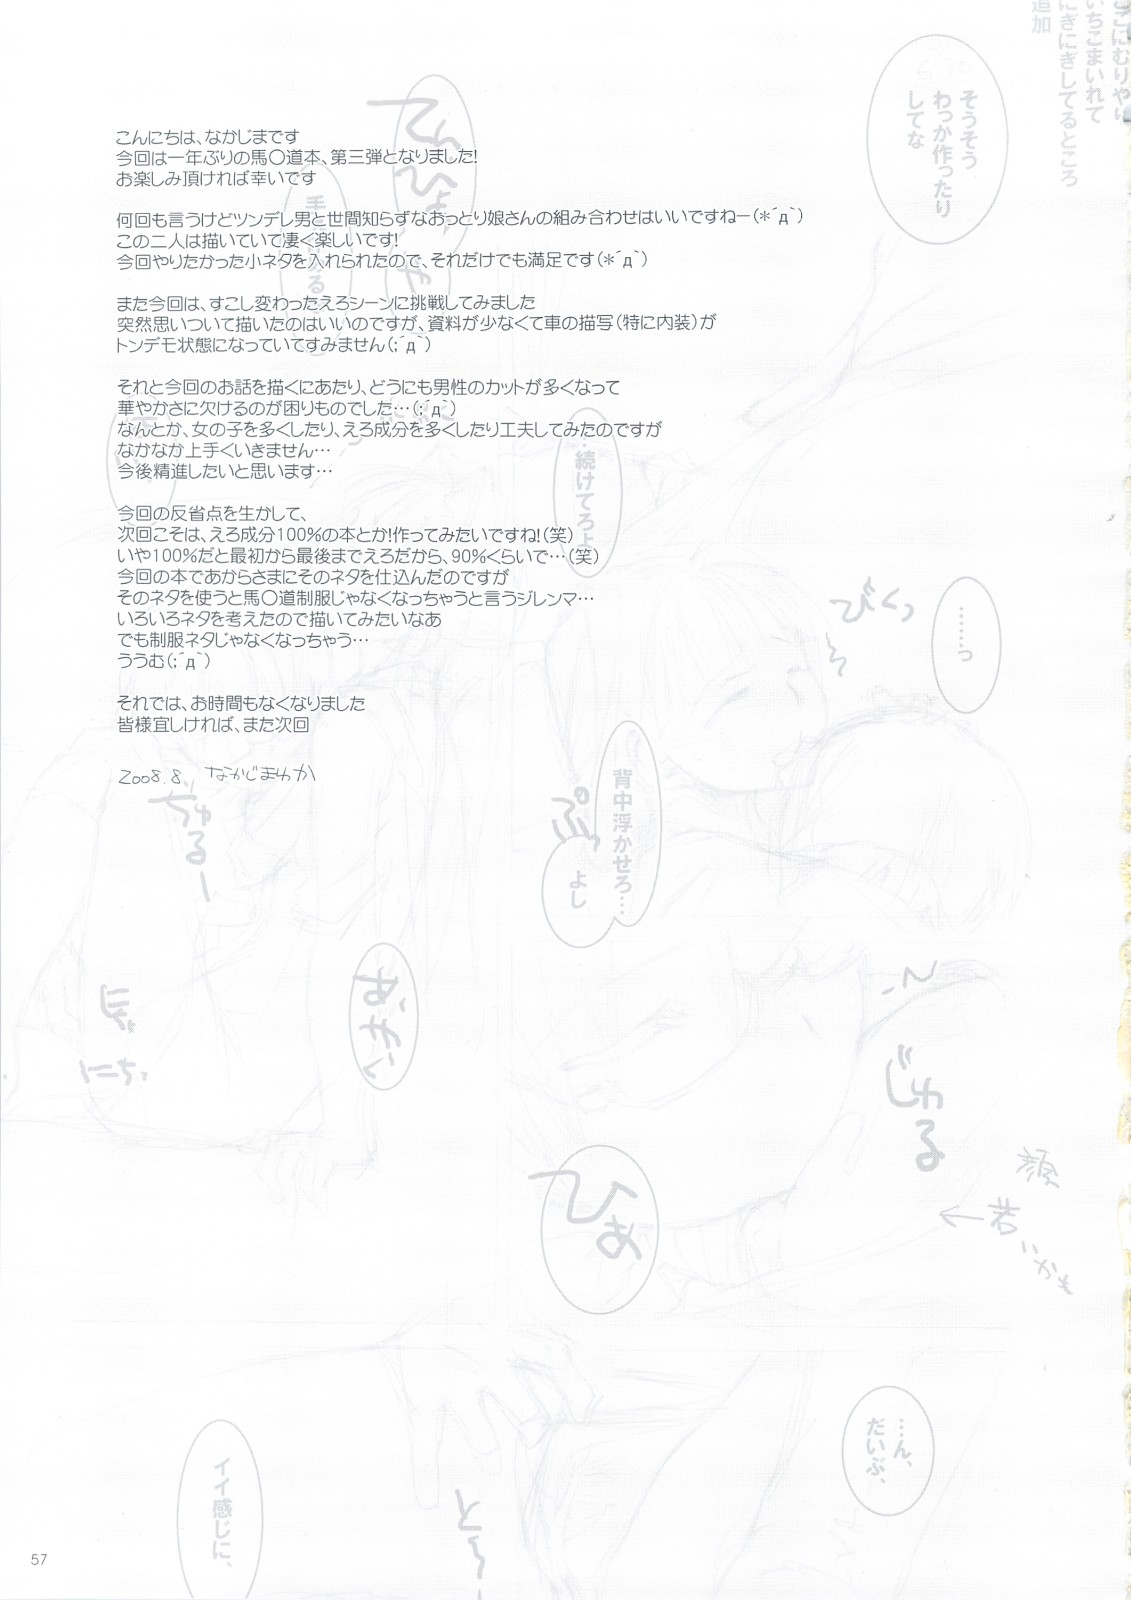 こんにちは、なかじまです
今回は一年ぶりの馬〇道本、第三弾となりました!
お楽しみ頂ければ幸いです
何回も言うけどツンデレ男と世間知らずなおっとり娘さんの組み合わせはいいですねー(＊´д｀)
この二人は描いていて凄く楽しいです!
今回やりたかった小ネタを入れられたので、それだけでも満足です(＊´д｀)
また今回は、すこし変わったえろシーンに挑戦してみました
突然思いついて描いたのはいいのですが、資料が少なくて車の描写(特に内装)が
トンデモ状態になっていてすみません(;´д｀)
それと今回のお話を描くにあたり、どうにも男性のカットが多くなって
華やかさに欠けるのが困りものでした…(;´д｀)
なんとか、女の子を多くしたり、えろ成分を多くしたり工夫してみたのですが
なかなか上手くいきません…
今後精進したいと思います…
今回の反省点を生かして、
次回こそは、えろ成分100%の本とか!作ってみたいですね!(笑)
いや100%だと最初から最後までえろだから、90%くらいで…(笑)
今回の本であからさまにそのネタを仕込んだのですが
そのネタを使うと馬〇道制服じゃなくなっちゃうと言うジレンマ…
いろいろネタを考えたので描いてみたいなあ
でも制服ネタじゃなくなっちゃう…
ううむ(;´д｀)
それでは、お時間もなくなりました
皆様宜しければ、また次回
2008.8. なかじまゆか
にぎにぎしてるところ
追加
そうそう
わっか作ったり
してな
てん
ひょ
…続けてろよ
びくっ
……っ
背中浮かせろ…
ぷっ
よし
ちゅる
じゅる
ひぁ
顔
若いかも
…ん、
だいぶ、
イイ感じに、
57